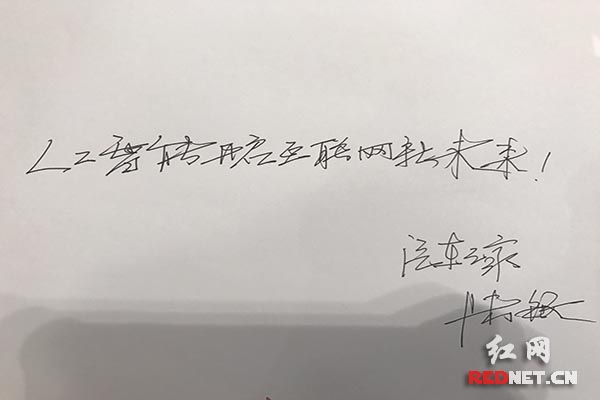 人工智能开启互联网新未来！
汽车之家
红网
REDNET.CN